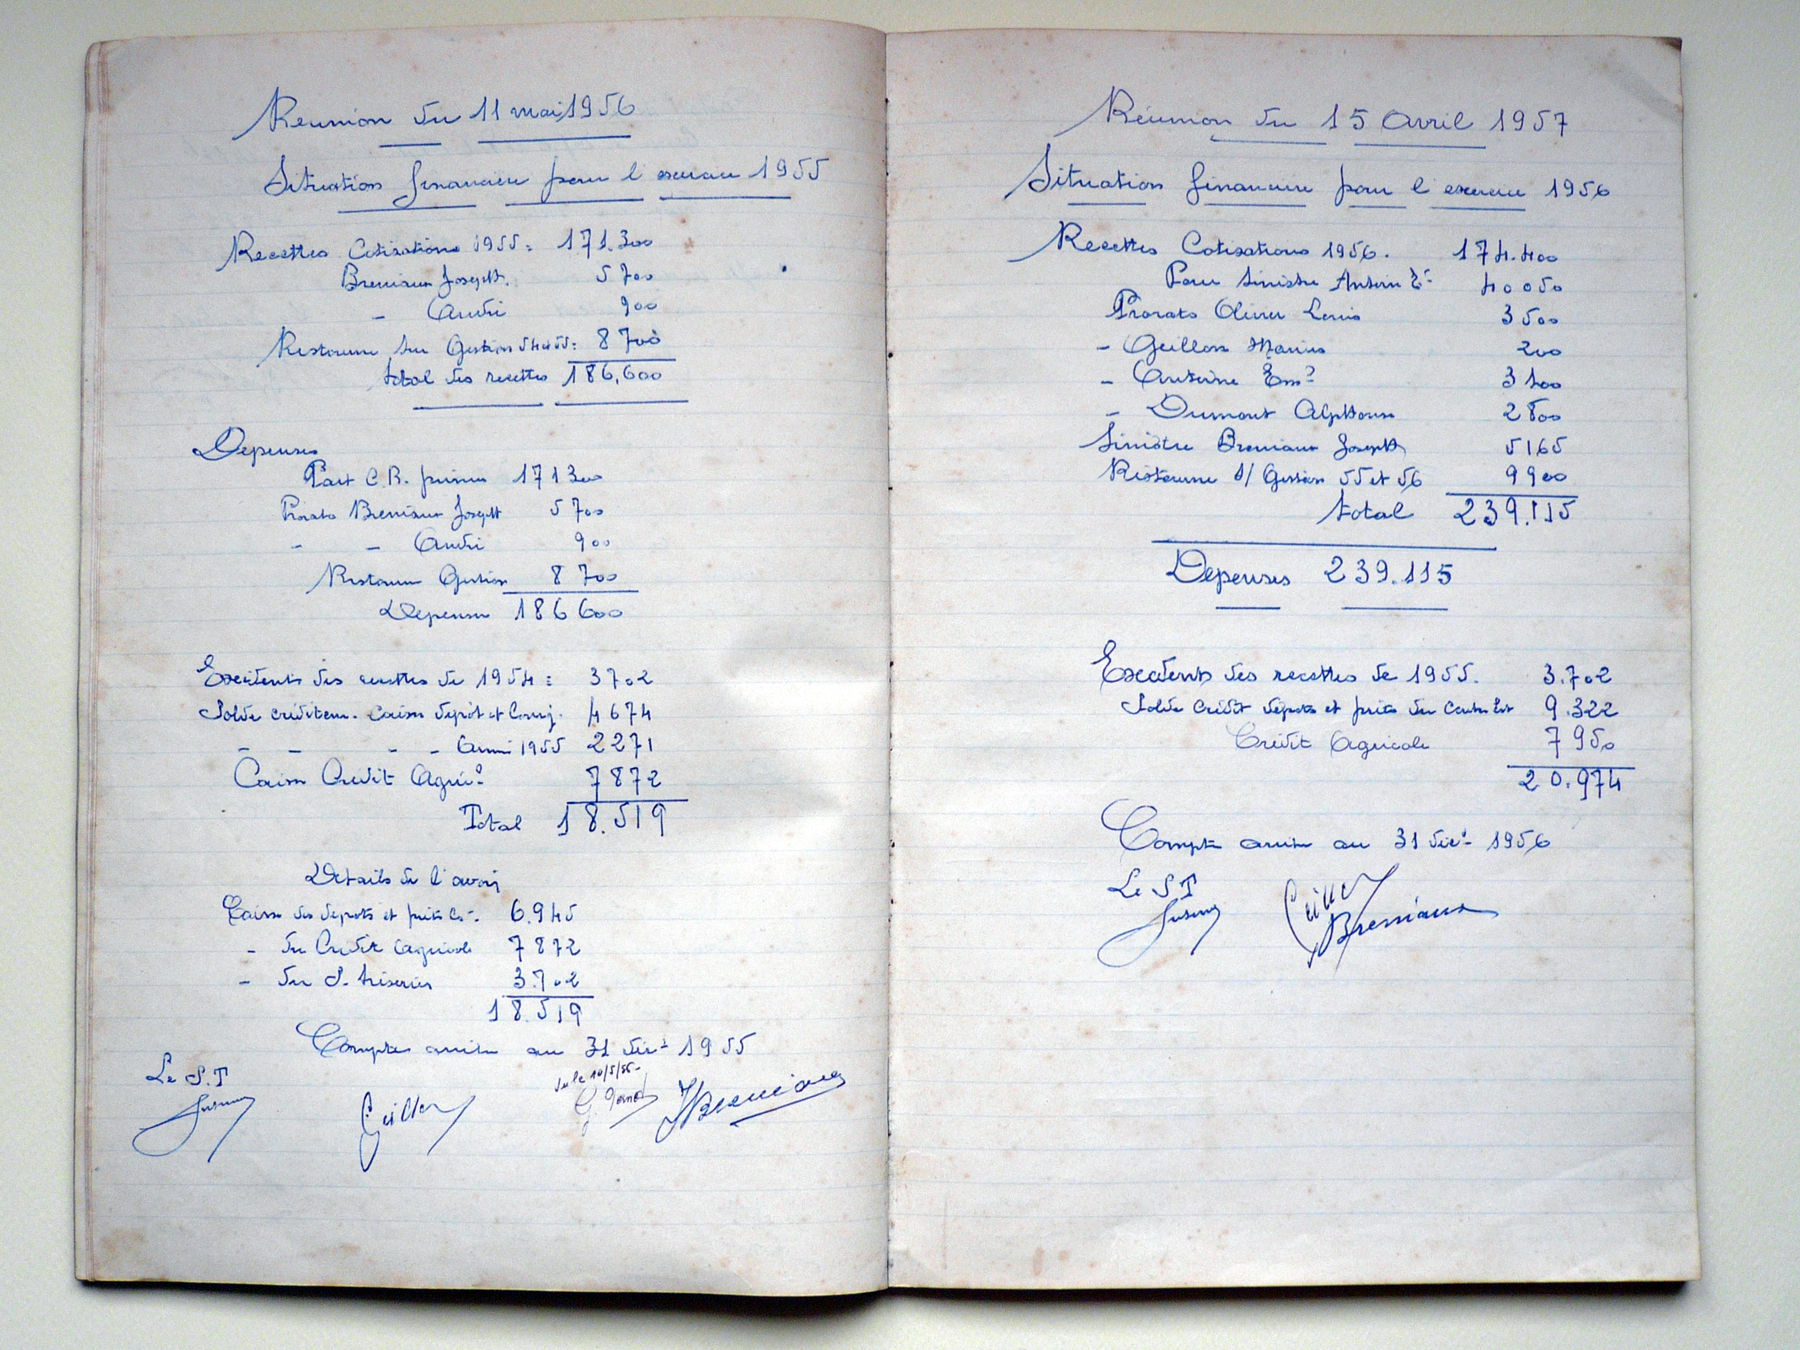 Reunion du 11 mai 1956
Situation financiere pour l'exercice 1955
Recettes Cotisations 1955 : 171.300
Bremiaux Joseph. 5 700
- André 900
Ristourne sur Gestion 54 et 55 : 8 700
total des recettes 186.600
Depenses
Part C.R. primes 171 300
Prorata Bremiaux Joseph 5 700
- - André 900
Ristourne Gestion 8 700
Depenses 186 600
Excédents des recettes de 1954 : 3702
Solde créditeur. Caisse depôt et 4 674
- - - - Année 1955 2271
Caisse Crédit Agric. 7872
Total 18.519
Details de l'avoir
Caisse des depots et prets 6.945
- du Credit agricole 7872
- du S. trésorier 3.702
18.519
Comptes arrêtés au 31 déc. 1955
Le S.T
Vu le 10/5/56
Réunion du 15 Avril 1957
Situation financiere pour l'exercice 1956
Recettes Cotisations 1956. 174.400
Pour Sinistre 40 050
Prorata Olivier Louis 3 500
- Geillon Marius 200
- Antoine Em. 3 100
- Dumont Alphonse 2 800
Sinistre Bremiaux Joseph 5165
Ristourne s/ Gestion 55 et 56 9 900
total 239.115
Depenses 239.115
Excédents des recettes de 1955. 3.702
Solde crédit dépots et prets du 9.322
Crédit Agricole 7 950
20.974
Compte arrêté au 31 déc. 1956
Le S T
Bremiaux